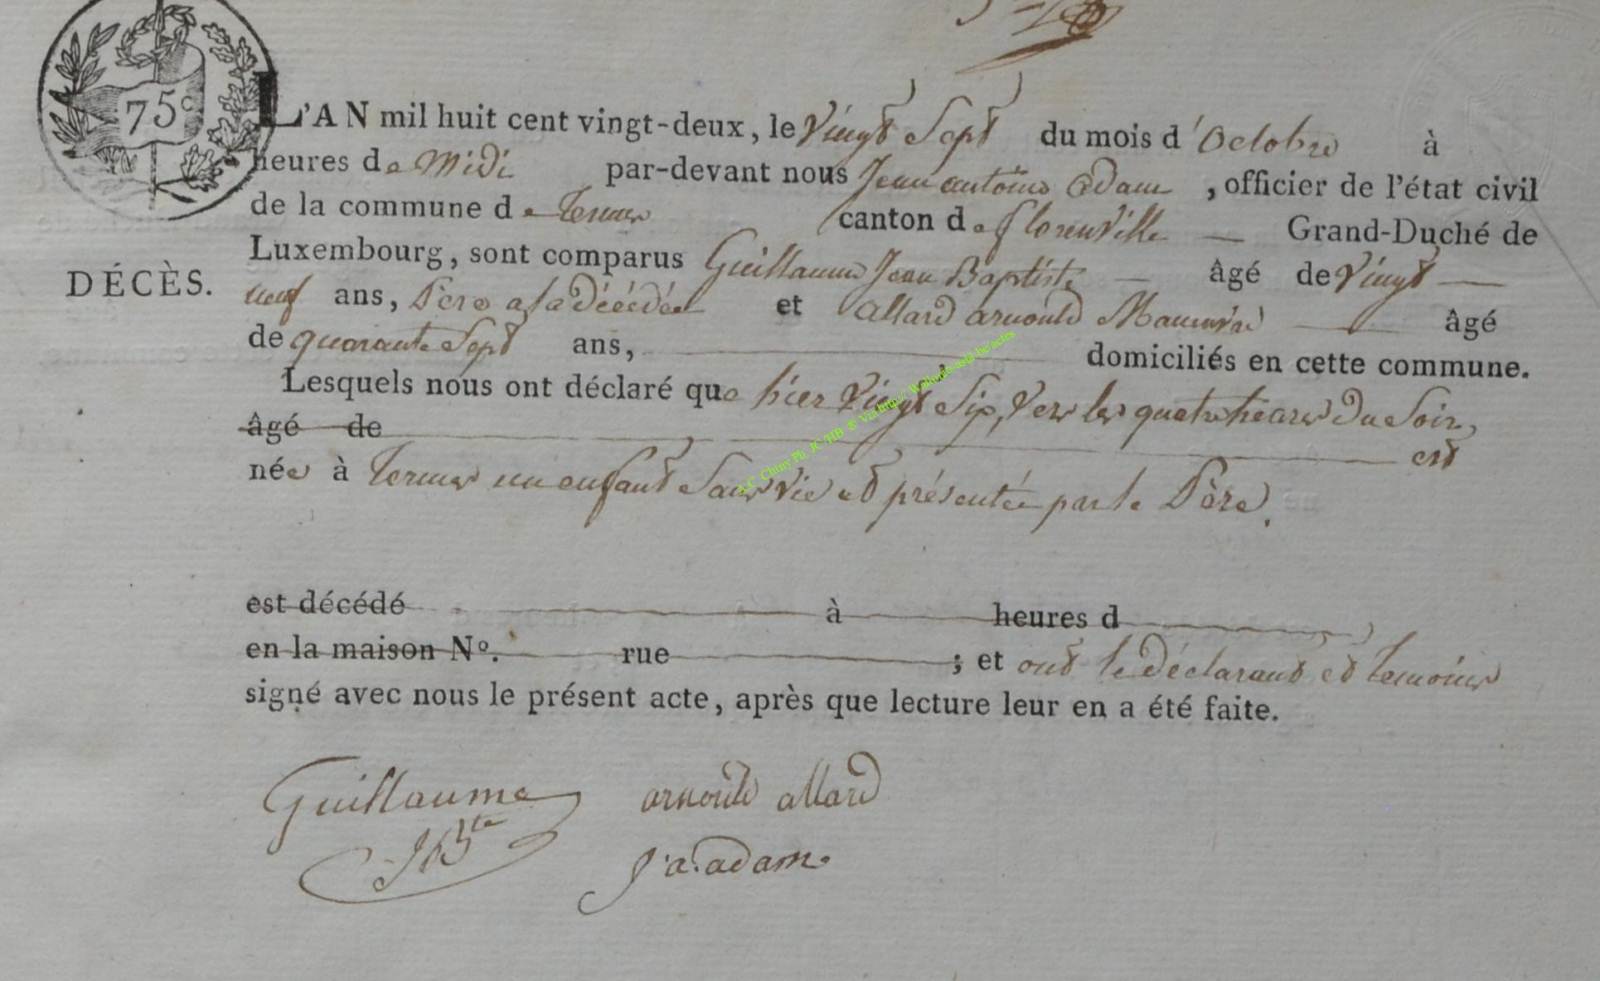 75c
L'AN mil huit cent vingt-deux, le Vingt Sept du mois d'Octobre à
heures de Midi par-devant nous Jean antoine Adam, officier de l'état civil
de la commune de Termes canton de florenville Grand-Duché de
Luxembourg, sont comparus Guillaume Jean Baptiste âgé de Vingt
DÉCÈS.
neuf ans, Père a la décédée et Allard arnould âgé
de quarante Sept ans, domiciliés en cette commune.
Lesquels nous ont déclaré que hier Vingt Six, Vers les quatre heures Du Soir,
âgé de est
née à Termes un enfant Sans Vie et présentée par le Père.
est décédé à heures d
en la maison N°. rue ; et ont le Déclarant et temoins
signé avec nous le présent acte, après que lecture leur en a été faite.
Guillaume arnould allard
JBte J. a. adam.